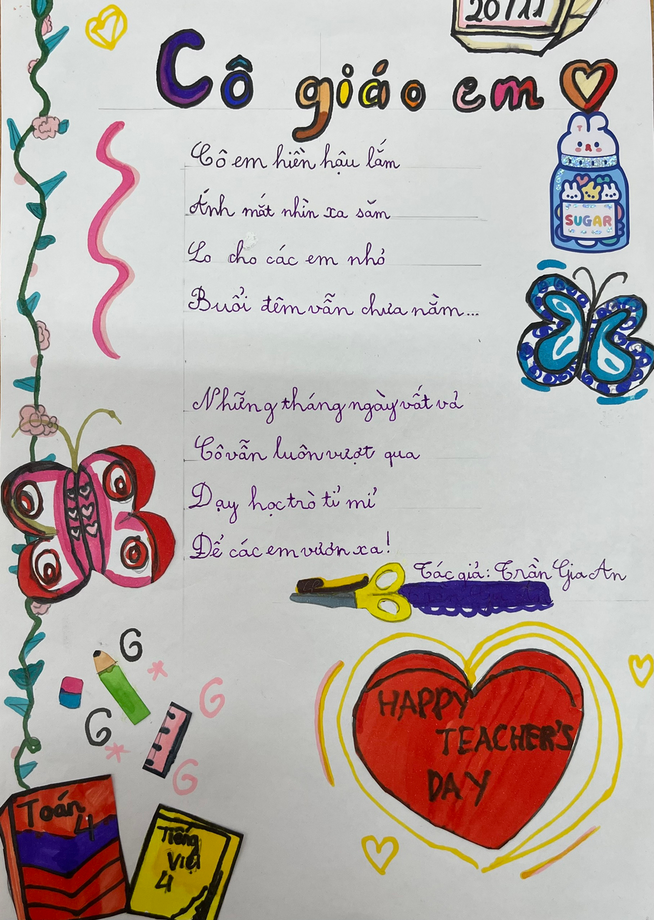 20/11
Cô giáo em
Cô em hiền hậu lắm
Ánh mắt nhìn xa săm
Lo cho các em nhỏ
Buổi đêm vẫn chưa nằm...
SUGAR
Những tháng ngày vất vả
Cô vẫn luôn vượt qua
Dạy học trò tỉ mỉ
Để các em vươn xa!
Tác giả: Trần Gia An
HAPPY
TEACHER'S
DAY
Toán
4
Tiếng
Việt
4